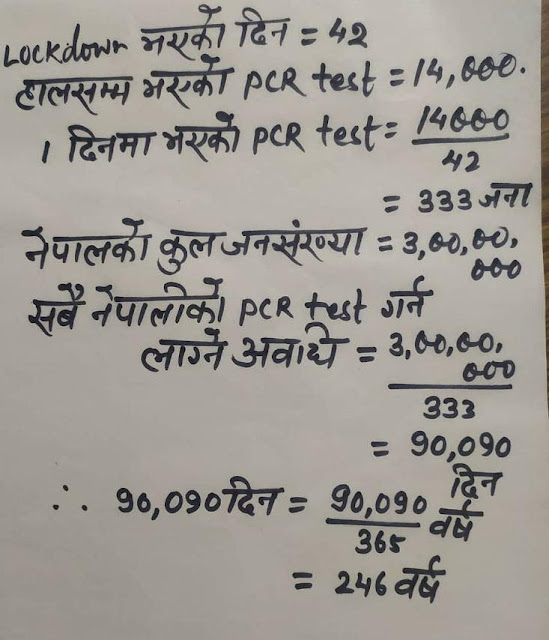 Lockdown भएको दिन = 42
हालसम्म भएको PCR test = 14,000.
1 दिनमा भएको PCR test = 14000
42
= 333 जना
नेपालको कुल जनसंख्या = 3,00,00,
000
सबै नेपालीको PCR test गर्न
लाग्ने अवधि = 3,00,00,
000
333
= 90,090
दिन
∴ 90,090 दिन = 90,090 वर्ष
365
= 246 वर्ष